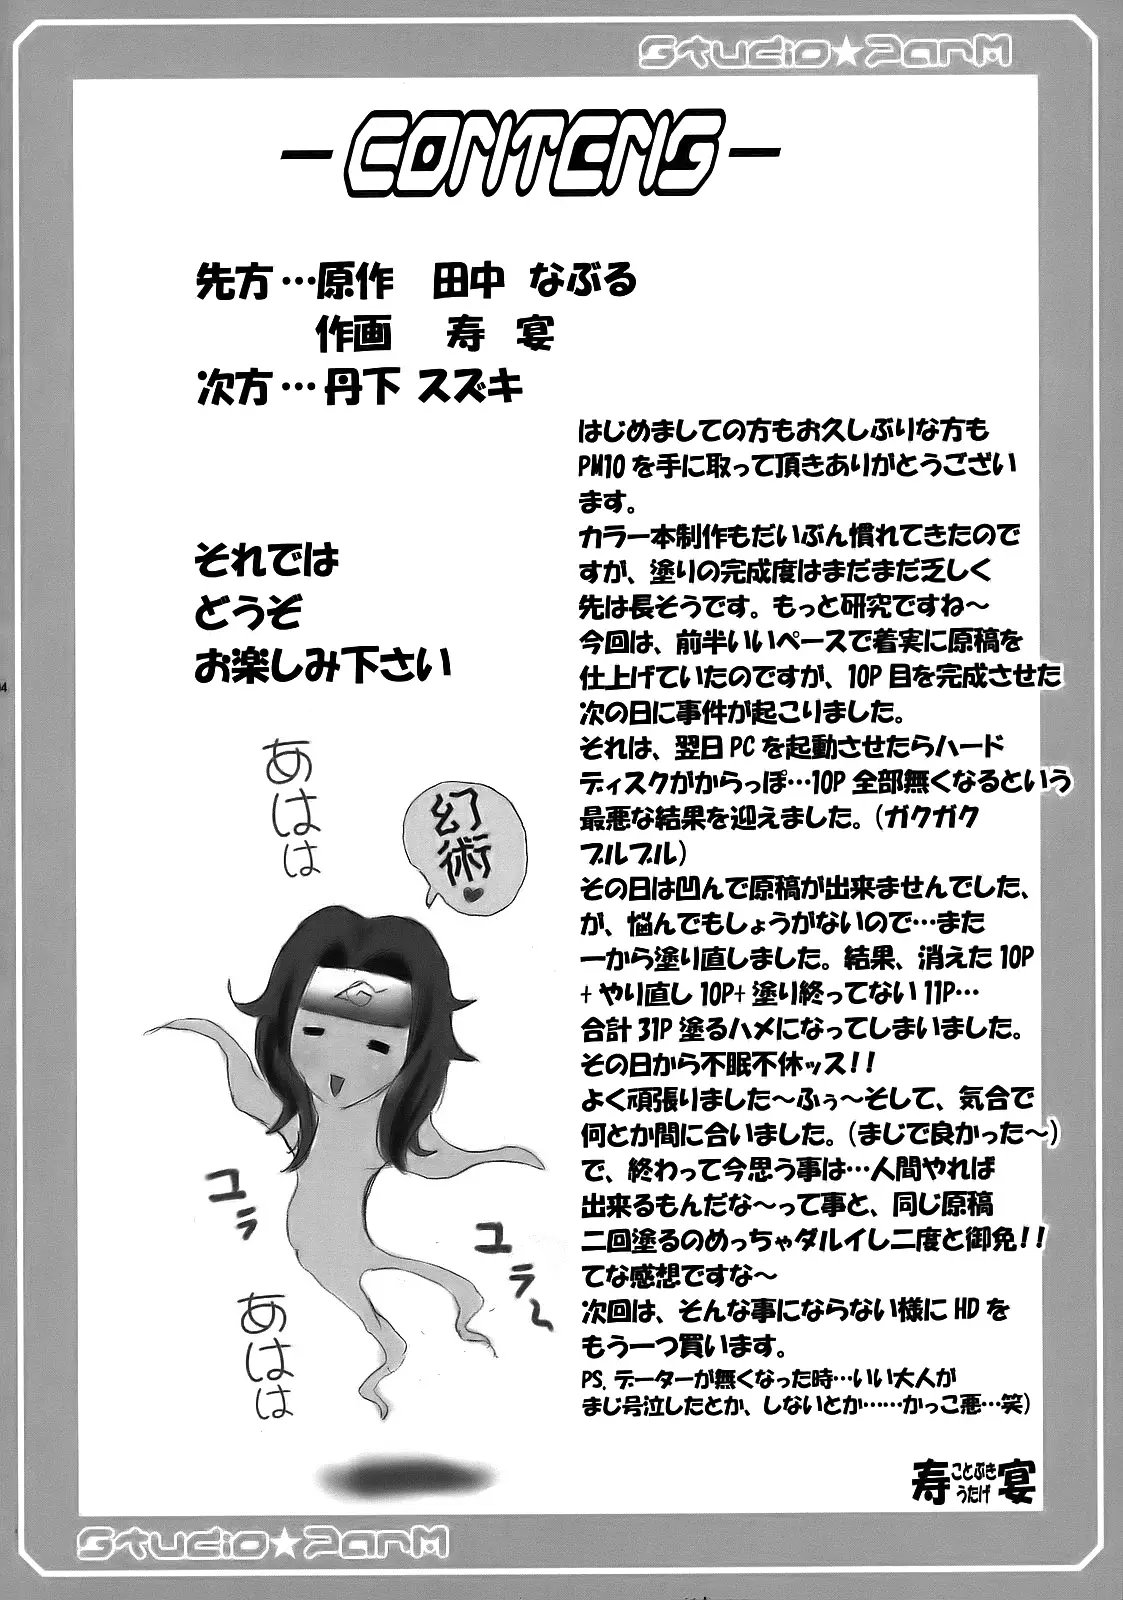 Studio★PanM
-CONTENS-
先方…原作　田中 なぶる
作画　寿 宴
次方…丹下 スズキ
はじめましての方もお久しぶりな方も
PM10を手に取って頂きありがとうござい
ます。
カラー本制作もだいぶん慣れてきたので
すが、塗りの完成度はまだまだ乏しく
先は長そうです。もっと研究ですね～
今回は、前半いいペースで着実に原稿を
仕上げていたのですが、10P目を完成させた
次の日に事件が起こりました。
それは、翌日PCを起動させたらハード
ディスクがからっぽ…10P全部無くなるという
最悪な結果を迎えました。(ガクガク
ブルブル)
その日は凹んで原稿が出来ませんでした、
が、悩んでもしょうがないので…また
一から塗り直しました。結果、消えた10P
+やり直し10P+塗り終ってない11P…
合計31P塗るハメになってしまいました。
その日から不眠不休ッス!!
よく頑張りました～ふぅ～そして、気合で
何とか間に合いました。(まじで良かった～)
で、終わって今思う事は…人間やれば
出来るもんだな～って事と、同じ原稿
二回塗るのめっちゃダルイし二度と御免!!
てな感想ですな～
次回は、そんな事にならない様にHDを
もう一つ買います。
PS.データーが無くなった時…いい大人が
まじ号泣したとか、しないとか……かっこ悪…笑)
寿 ことぶき
うたげ 宴
それでは
どうぞ
お楽しみ下さい
04
あはは
幻術♥
ユラ
ユラ～
あはは
Studio★PanM